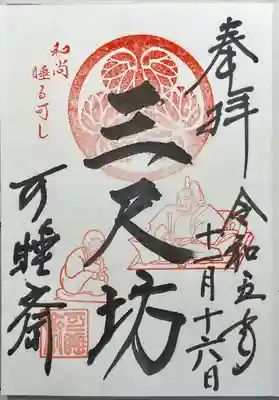 奉拝
令和五年
十一月十六日
三尺坊
和尚
睡る可し
可睡斎